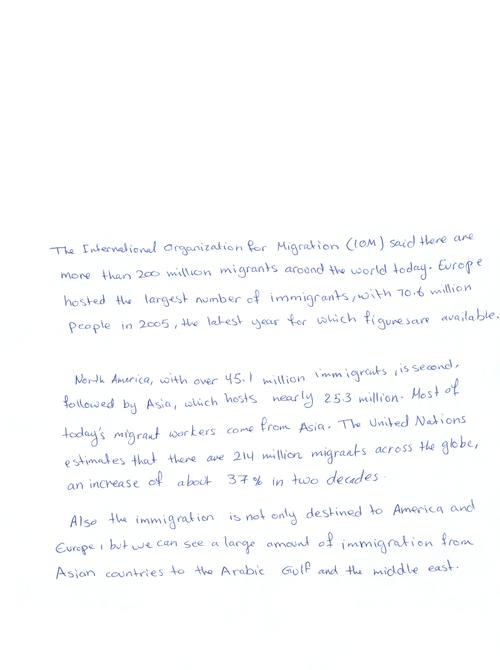 The International Organization for Migration (IOM) said there are
more than 200 million migrants around the world today. Europe
hosted the largest number of immigrants, with 70.6 million
people in 2005, the latest year for which figures are available.
North America, with over 45.1 million immigrants, is second,
followed by Asia, which hosts nearly 25.3 million. Most of
today's migrant workers come from Asia. The United Nations
estimates that there are 214 million migrants across the globe,
an increase of about 37% in two decades.
Also the immigration is not only destined to America and
Europe, but we can see a large amount of immigration from
Asian countries to the Arabic Gulf and the middle east.